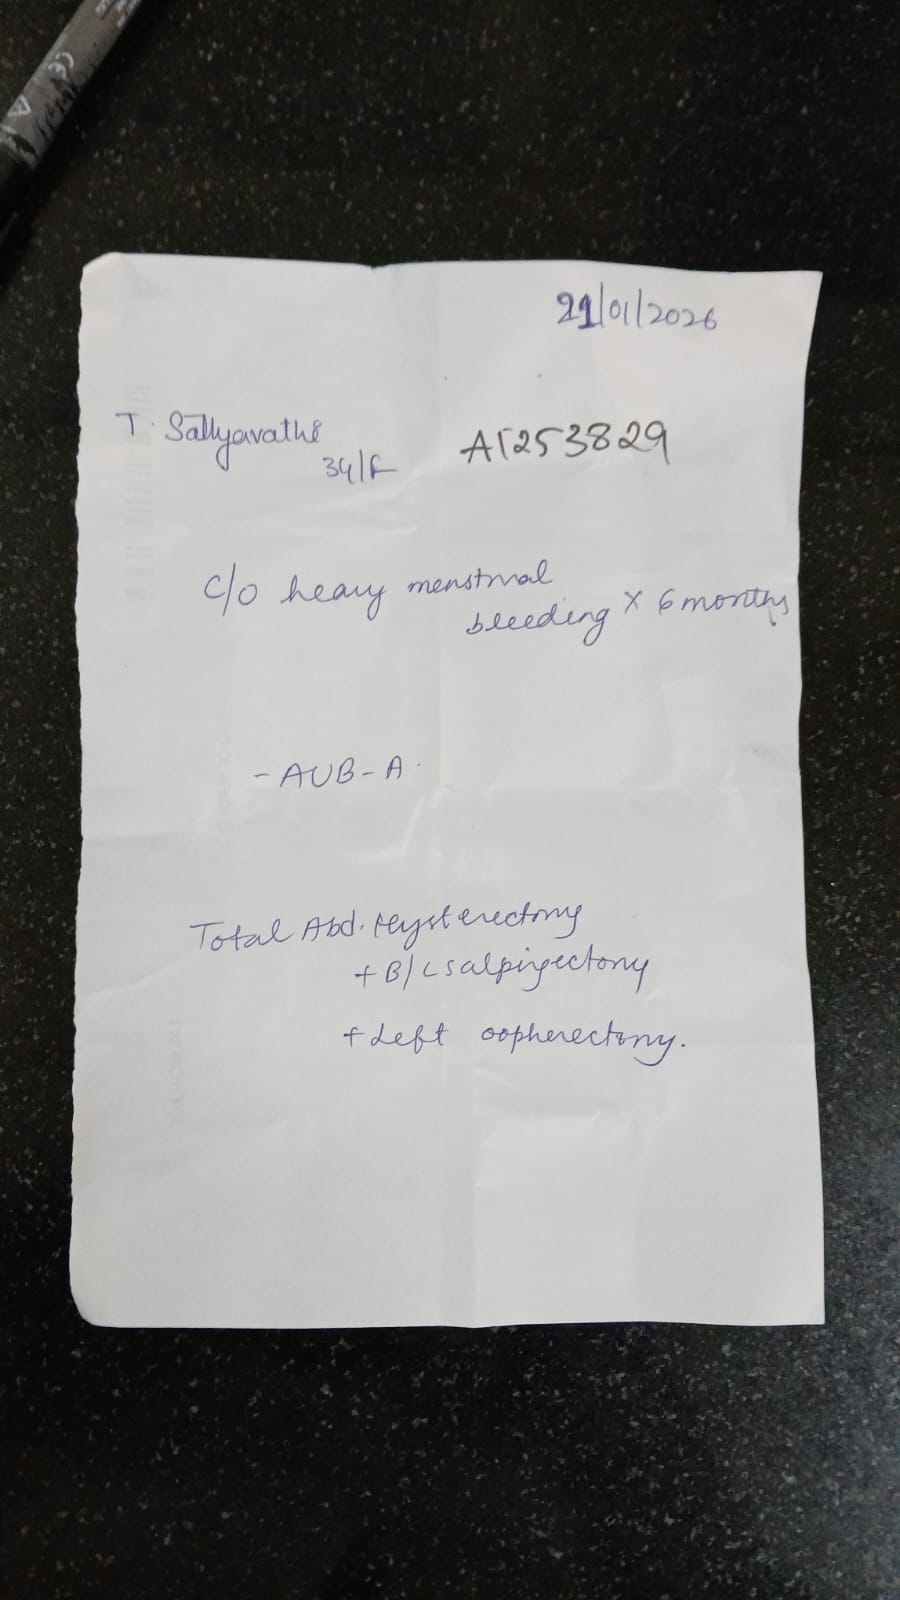 21/01/2026
T. Sattyavathi
34/F
AI253829
c/o heavy menstrual
bleeding x 6 months
- AUB - A
Total Abd. Hysterectomy
+ B/L salpingectomy
+ Left oopherectomy.